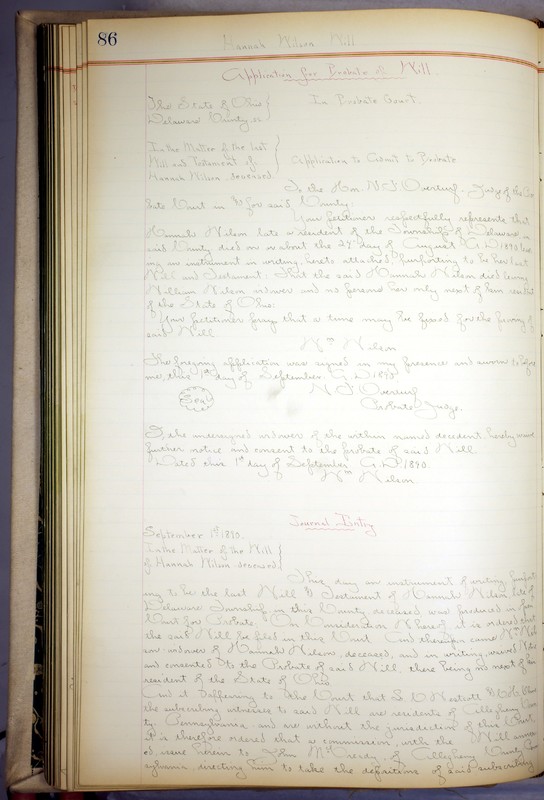 86
Hannah Wilson Will
Application for Probate of Will.
The State of Ohio
Delaware County, ss
In Probate Court.
In the Matter of the last
Will and Testament of
Hannah Wilson, deceased
Application to Admit to Probate
To the Hon. N. F. Overturf - Judge of the Pro
bate Court in & for said County:
Your petitioner respectfully represents that
Hannah Wilson late a resident of the Township of Delaware in
said County died on or about the 22nd day of August A.D. 1890 leav
ing an instrument in writing, hereto attached, purporting to be her last
Will and Testament; That the said Hannah Wilson died leaving
William Wilson widower and no persons her only next of kin resident
of the State of Ohio:
Your petitioner prays that a time may be fixed for the proving of
said Will
Wm Wilson
The foregoing application was signed in my presence and sworn to before
me, this 1st day of September A.D. 1890.
Seal
N. F. Overturf
Probate Judge.
I, the undersigned widower of the within named decedent, hereby waive
further notice and consent to the probate of said Will
Dated this 1st day of September A.D. 1890.
Wm Wilson.
Journal Entry
September 1st 1890.
In the Matter of the Will
of Hannah Wilson deceased
This day an instrument of writing purport
ing to be the last Will & Testament of Hannah Wilson late of
Delaware Township in this County deceased was produced in open
Court for Probate. On Consideration Whereof it is ordered that
the said Will be filed in this Court. And thereupon came Wm Wil
son widower of Hannah Wilson, deceased, and in writing, waived Notice
and consented to the Probate of said Will, there being no next of kin
resident of the State of Ohio
And it appearing to the Court that S. W. Nestcott &
the subscribing witnesses to said Will are residents of Allegheny Coun
ty, Pennsylvania, and are without the jurisdiction of this Court,
it is therefore ordered that a commission, with the Will annex
ed, issue herein to John of Allegheny County Penn
sylvania, directing him to take the depositions of said subscribing